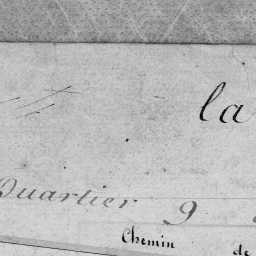 la
Quartier 9
Chemin de